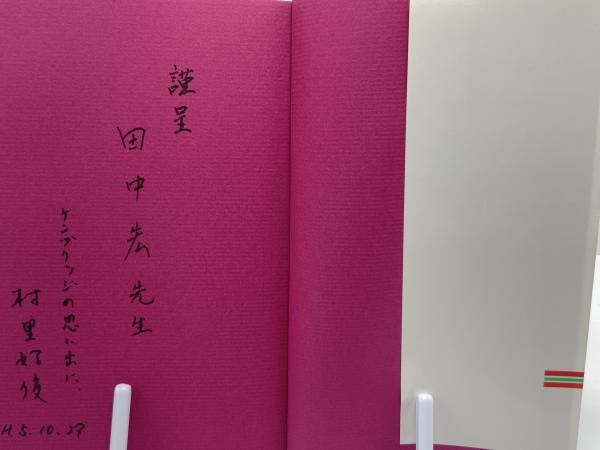 謹呈
田中宏先生
ケンブリッジの思い出に、
村里好俊
H.5.10.27